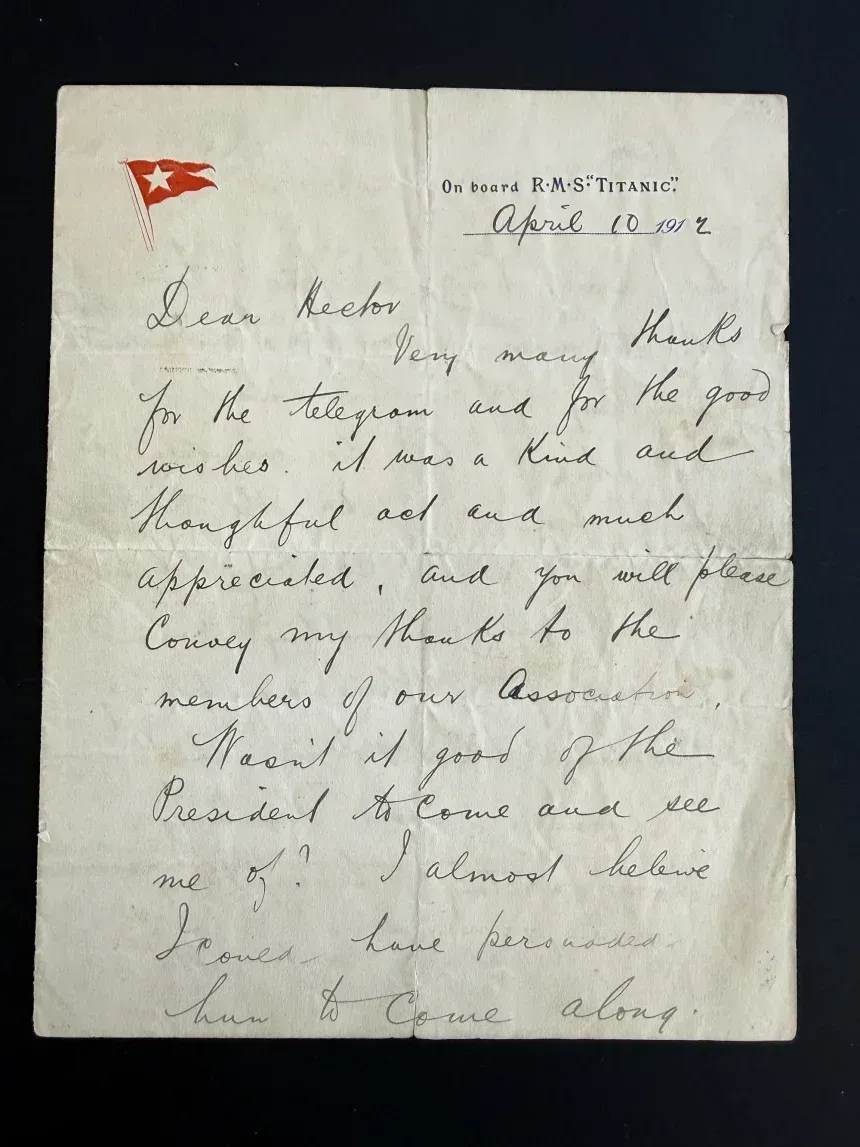 On board R·M·S·"TITANIC".
April 10 1912
Dear Hector
Very many thanks
for the telegram and for the good
wishes. it was a kind and
thoughtful act and much
appreciated, and you will please
Convey my thanks to the
members of our Association.
Wasn't it good of the
President to come and see
me of? I almost beleive
I could have persuaded
him to Come along.